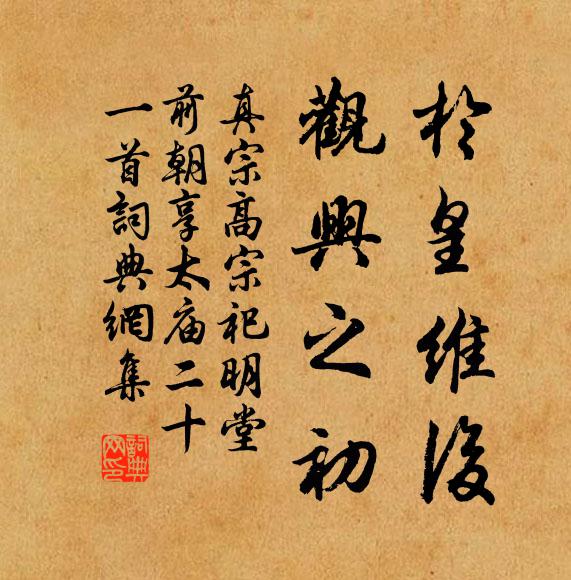 於皇維後
觀興之初
真宗高宗祀明堂
前朝享太庙二十
一首詞典網集
詞典网印